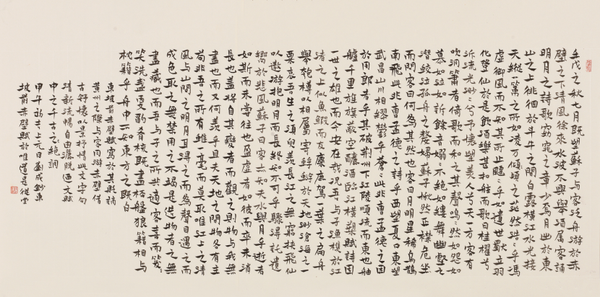 壬戌之秋七月既望蘇子与客汎舟游於赤
壁之下清風徐來水波不興舉酒屬客誦
明月之詩歌窈窕之章少焉月出於東
山之上徘徊於斗牛之間白露橫江水光接
天縱一葦之所如凌万頃之茫然浩浩乎馮
虛御風而不知其所止飄飄乎如遺世獨立羽
化登仙於是飲酒樂甚扣舷而歌
流光渺渺兮予懷望美人兮天一方客有
吹洞簫者倚歌而和之其聲嗚嗚然如怨如
慕如泣如訴餘音嫋嫋不絕如縷舞幽壑之
潛蛟泣孤舟之嫠婦蘇子愀然正襟危坐
而問客曰何為其然也客曰月明星稀烏鵲
南飛此非孟德之詩乎西望夏口東望
武昌山川相繆鬱乎蒼蒼此非孟德之困
於周郎者乎方其破荊州下江陵順流而東也舳
艫千里旌旗蔽空釃酒臨江橫槊賦詩固
一世之雄也而今安在哉況吾与子漁樵於江
渚之上侶魚蝦而友麋鹿駕一葉之扁舟
舉匏樽以相屬寄蜉蝣於天地渺滄海之一
粟哀吾生之須臾羨長江之無窮挾飛仙
以遨遊抱明月而長終知不可乎驟得託遺
響於悲風蘇子曰客亦知夫水与月乎逝者
如斯而未嘗往也盈虛者如彼而卒莫消
長也蓋將自其變者而觀之則物与我皆無
盡也而又何羨乎且夫天地之間物各有主
苟非吾之所有雖一毫而莫取惟江上之清
風与山間之明月耳得之而為聲目遇之而
成色取之無禁用之不竭是造物者之無
盡藏也而吾与子之所共適客喜而
笑洗盞更酌肴核既盡杯盤狼籍相与
枕藉乎舟中不知東方之既白
東坡前赤壁賦